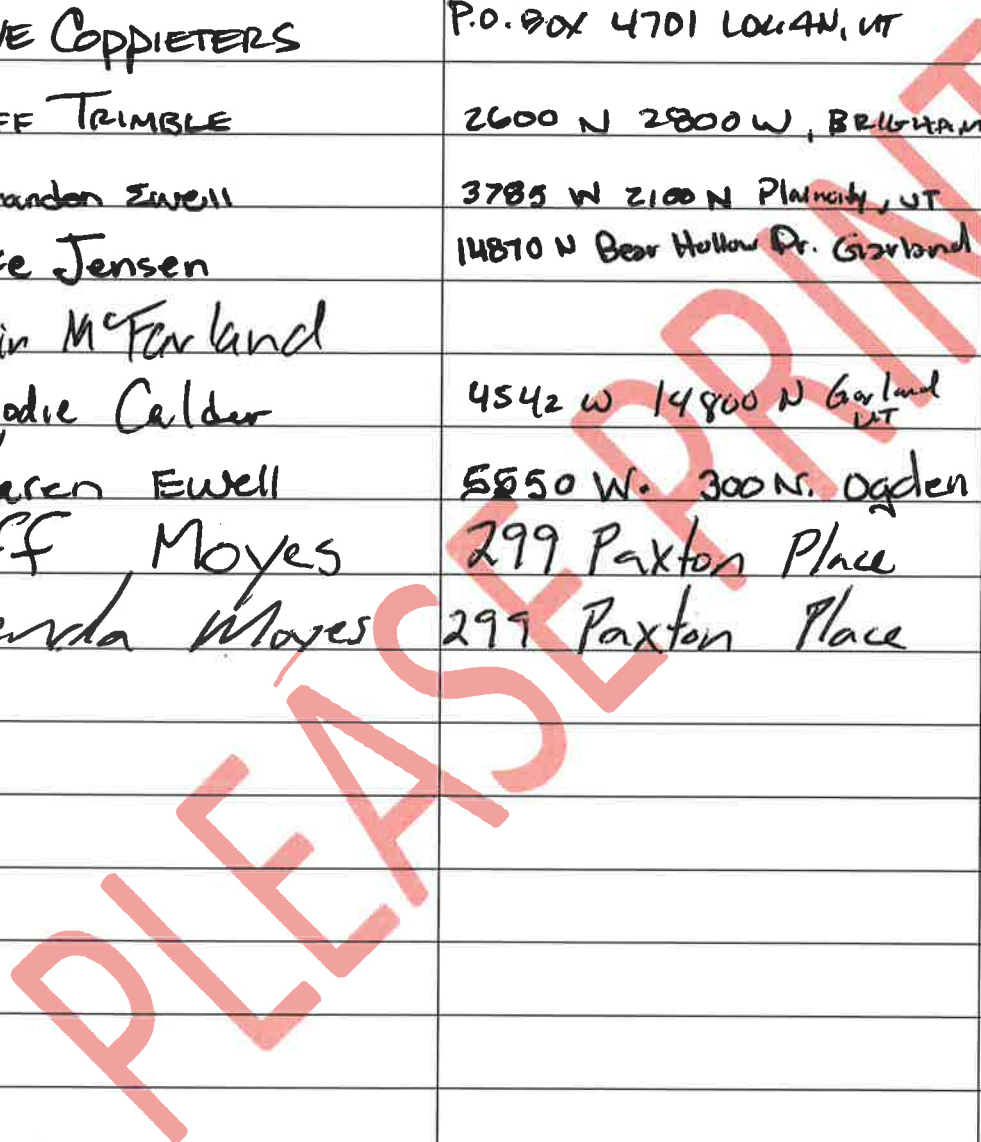 VE COPPIETERS P.O. BOX 4701 LOGAN, UT
EFF TRIMBLE 2600 N 2800 W, BRIGHAM
randon Ewell 3785 W 2100 N Plaincity, UT
ke Jensen 14870 N Bear Hollow Dr. Garland
in McFarland
odie Calder 4542 W 14800 N Garland UT
aren Ewell 5550 W. 300 N. Ogden
ff Moyes 299 Paxton Place
enda Moyes 299 Paxton Place
PLEASE PRINT